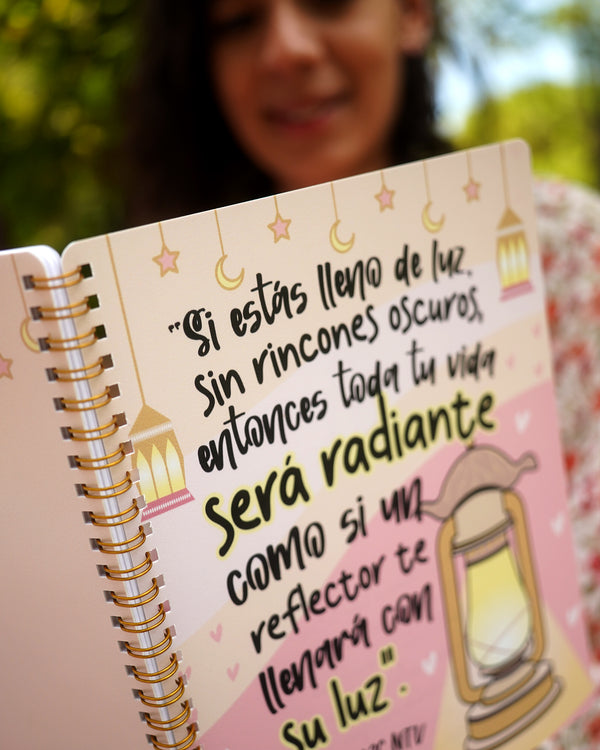 "Si estás lleno de luz,
sin rincones oscuros,
entonces toda tu vida
será radiante
como si un
reflector te
llenará con
su luz".
NTV